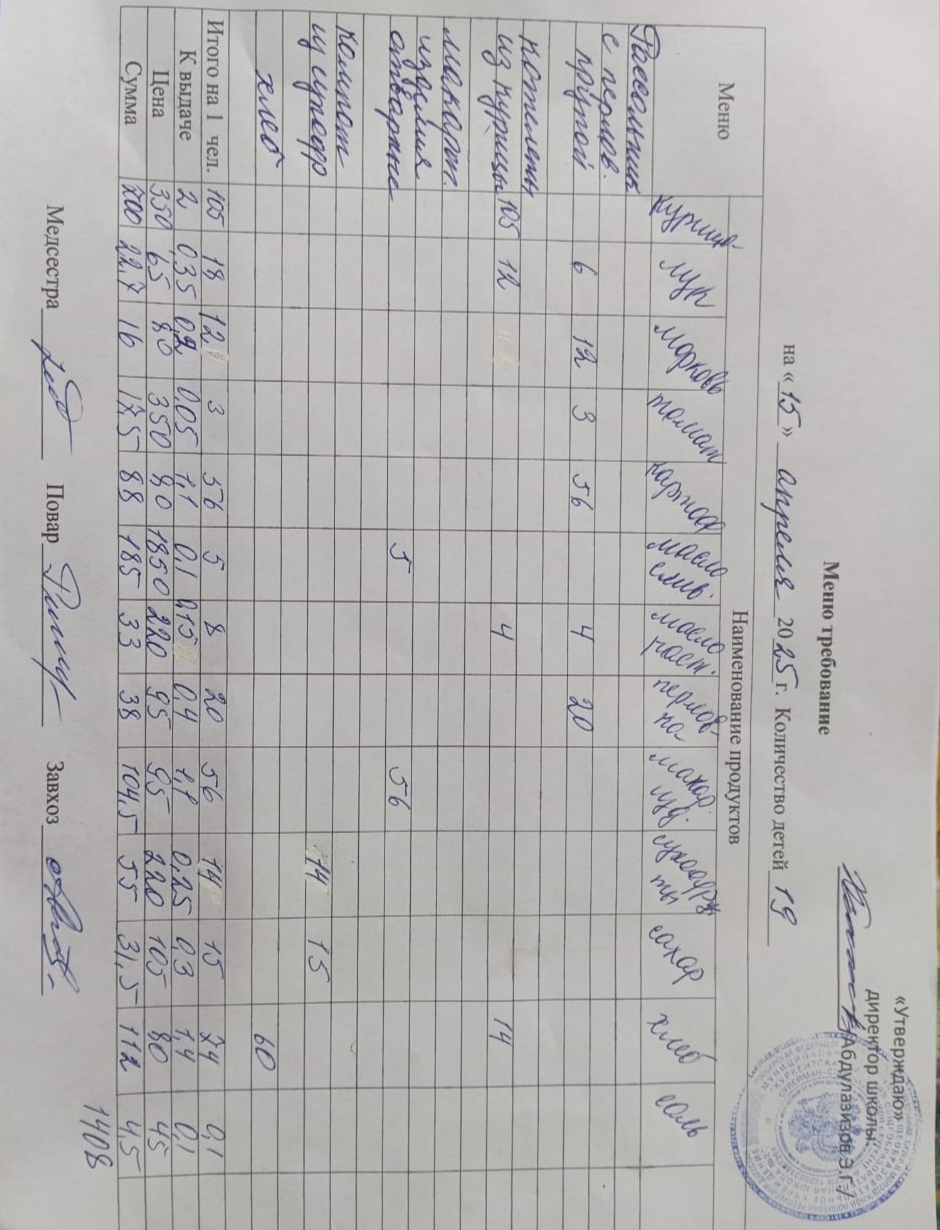 «Утверждаю»
директор школы:
/Абдулазизов Э.Г./
Меню требование
на «15» апреля 2025 г. Количество детей 19
Меню Наименование продуктов
курица лук морковь томат картоф масло слив. масло раст. перловка макар. изд. сухофрукты сахар хлеб соль
Рассольник
с перлов.
крупой 6 12 3 56 4 20
котлеты
из курицы 105 12 4 14
макарон.
изделия
отварные 5 56
компот
из сухофр 14 15
хлеб 60
Итого на 1 чел. 105 18 12 3 56 5 8 20 56 14 15 74 0,1
К выдаче 2 0,35 0,2 0,05 1,1 0,1 0,15 0,4 1,1 0,25 0,3 1,4 0,1
Цена 350 65 80 350 80 1850 220 95 95 220 105 80 45
Сумма 700 22,7 16 17,5 88 185 33 38 104,5 55 31,5 112 4,5
1408
Медсестра Повар Завхоз